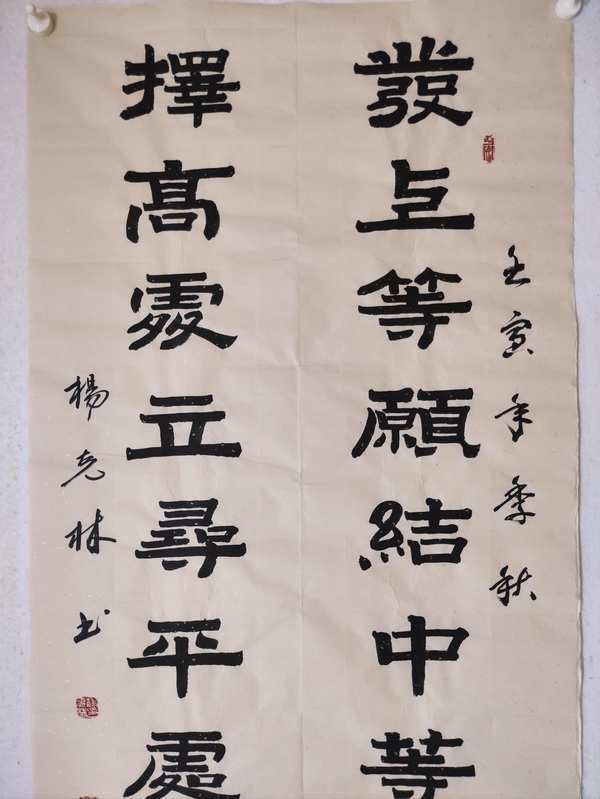 壬寅年季秋
發上等願結中等
擇高處立尋平處
楊 林书